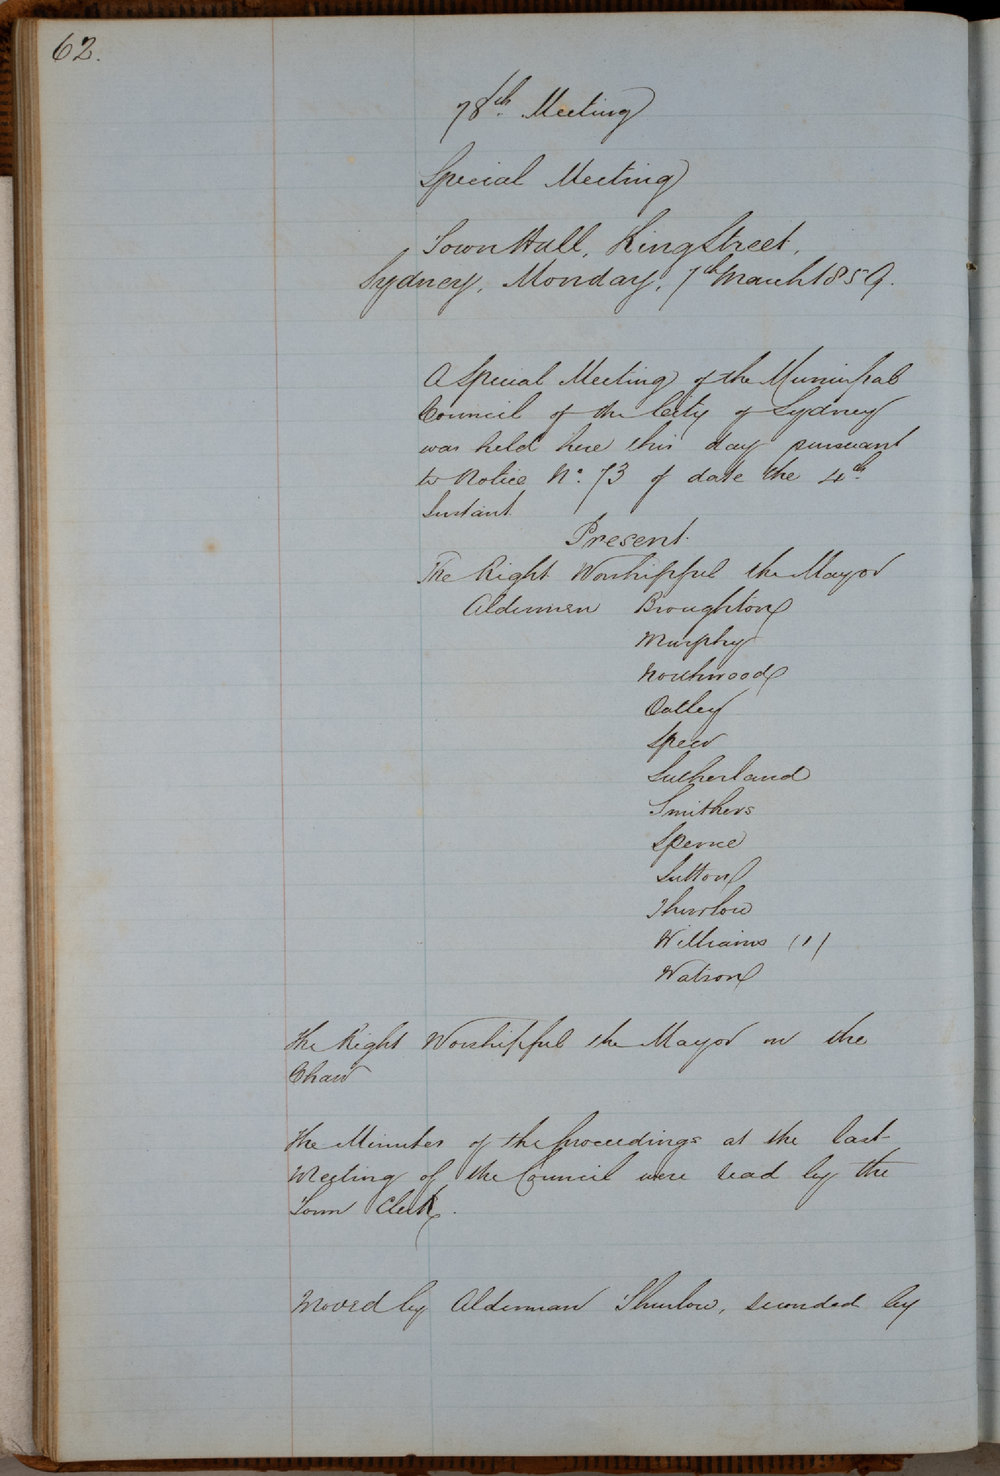 62.
78th Meeting
Special Meeting
Town Hall, King Street,
Sydney, Monday, 7th March 1859.
A Special Meeting of the Municipal
Council of the City of Sydney
was held here this day pursuant
to Notice No. 73 of date the 4th
Instant
Present.
The Right Worshipful the Mayor
Aldermen Broughton
Murphy
Northwood
Oatley
Speer
Sutherland
Smithers
Spence
Sutton
Thurlow
Williams (1)
Watson
The Right Worshipful the Mayor in the
Chair
The Minutes of the proceedings at the last
Meeting of the Council were read by the
Town Clerk.
Moved by Alderman Thurlow, seconded by